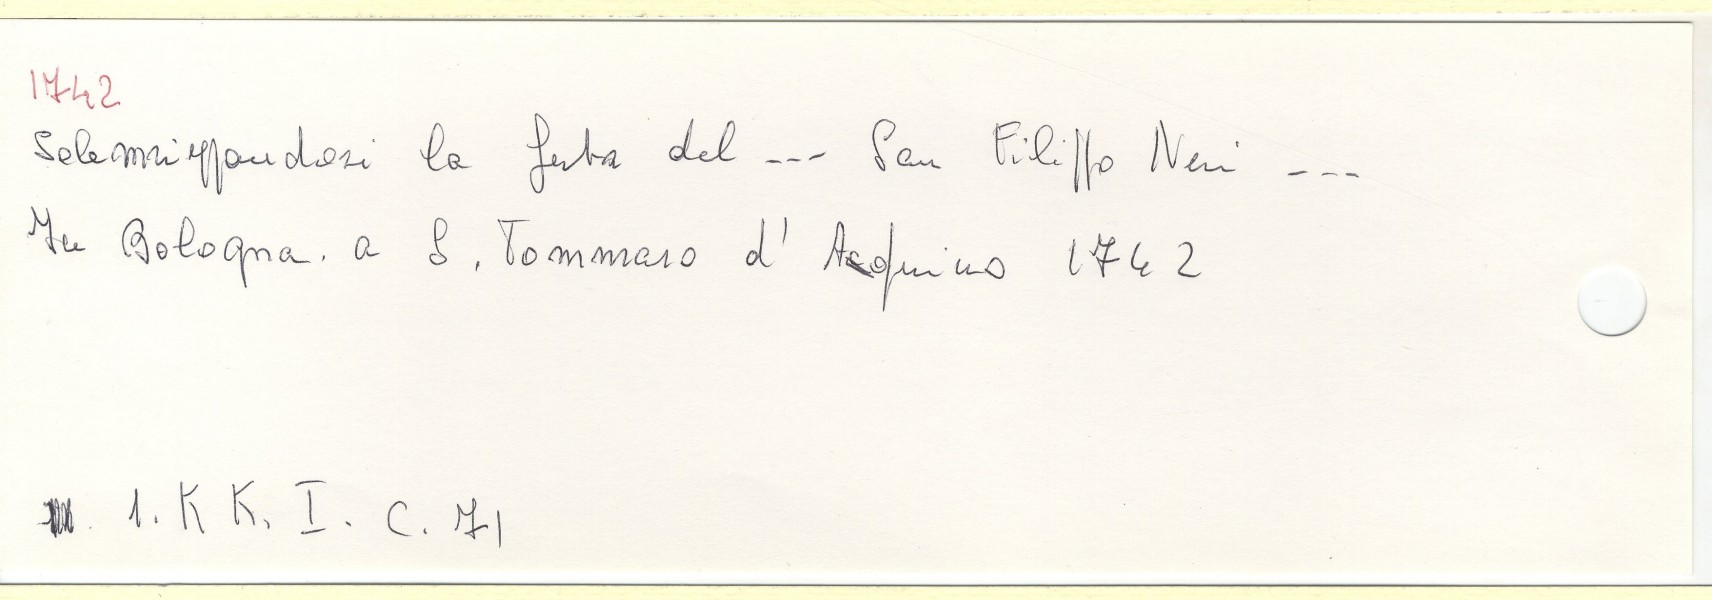 1742
Solemnizzandosi la festa del --- San Filippo Neri ---
In Bologna. a S. Tommaso d' Acquino 1742
1. K K. I. C. 71